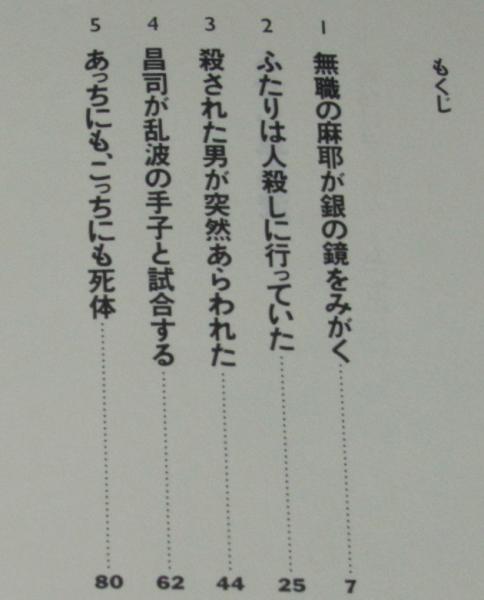 もくじ
1 無職の麻耶が銀の鏡をみがく……7
2 ふたりは人殺しに行っていた……25
3 殺された男が突然あらわれた……44
4 昌司が乱波の手子と試合する……62
5 あっちにも、こっちにも死体……80